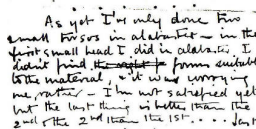 As yet I've only done two
small torsos in alabaster – in the
first small head I did in alabaster I
didn't find the right forms suitable
to the material, & it was worrying
me rather – I'm not satisfied yet
but the last thing is better than the
2nd & the 2nd than the 1st . . . . Just